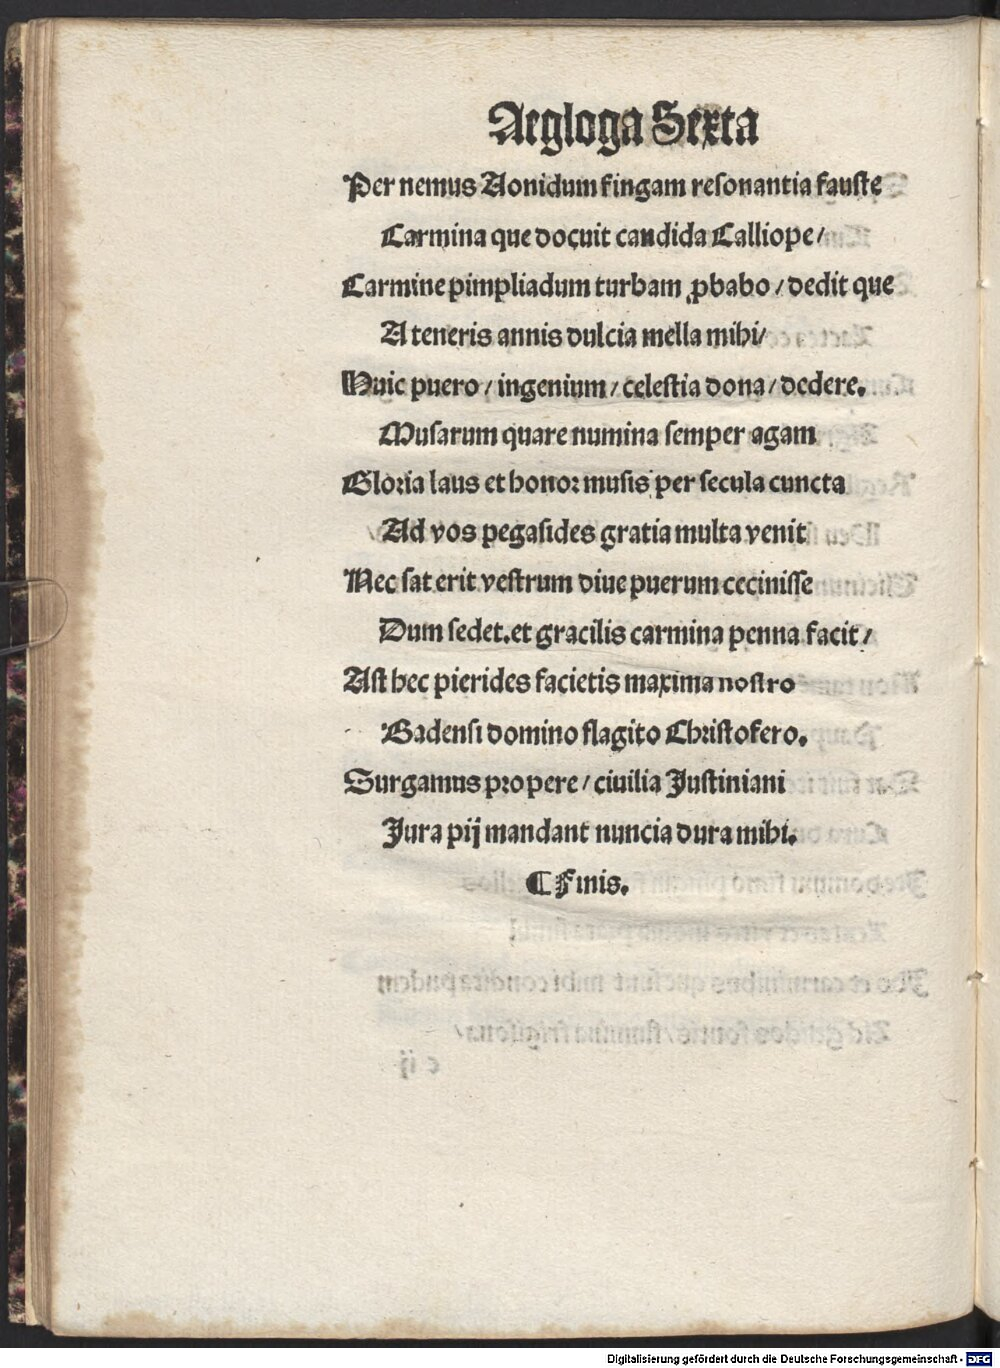 Aegloga Sexta
Per nemus Aonidum fingam resonantia fauste
Carmina que docuit candida Calliope/
Carmine pimpliadum turbam ꝓbabo/ dedit que
A teneris annis dulcia mella mihi/
Huic puero/ ingenium/ celestia dona/ dedere.
Musarum quare numina semper agam
Gloria laus et honor musis per secula cuncta
Ad vos pegasides gratia multa venit
Nec sat erit vestrum diue puerum cecinisse
Dum sedet. et gracilis carmina penna facit/
Ast hec pierides facietis maxima nostro
Badensi domino flagito Christofero.
Surgamus propere/ ciuilia Justiniani
Jura pij mandant nuncia dura mihi.
¶ Finis.
Digitalisierung gefördert durch die Deutsche Forschungsgemeinschaft - DFG